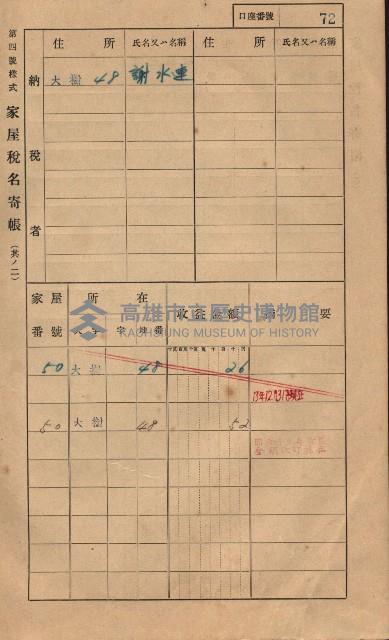 口座番號 72
第四號樣式 家屋稅名寄帳 (其ノ二)
納稅者
住所 氏名又ハ名稱 住所 氏名又ハ名稱
大樹 48 謝水連
家屋番號 所在 大字 字 地番 收益金額 摘要
高雄市立歷史博物館
KAOHSIUNG MUSEUM OF HISTORY
50 大樹 48 26
50 大樹 48 52